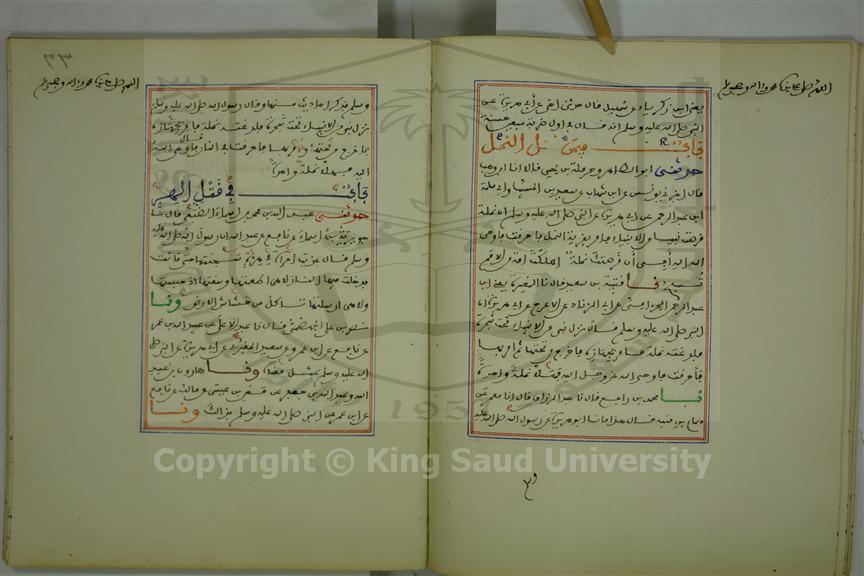 اللهم صل على سيدنا محمد وآله وصحبه وسلم
يعني ابن زكرياء عن سهيل قال حدثني اخي عن ابي هريرة عن
النبي صلى الله عليه وسلم انه قال في اول ضربة سبعين حسنة
باب في قتل النمل
حدثني ابو الطاهر وحرملة بن يحيى قالا انا ابن وهب
قال اخبرني يونس عن ابن شهاب عن سعيد بن المسيب وابي سلمة
ابن عبد الرحمن عن ابي هريرة عن النبي صلى الله عليه وسلم ان نملة
قرصت نبيا من الانبياء فامر بقرية النمل فاحرقت فاوحى
الله اليه أفي أن قرصتك نملة اهلكت امة من الامم
تسبح نا قتيبة بن سعيد قال نا المغيرة يعني ابن
عبد الرحمن الحزامي عن ابي الزناد عن الاعرج عن ابي هريرة ان
النبي صلى الله عليه وسلم قال نزل نبي من الانبياء تحت شجرة
فلدغته نملة فامر بجهازه فاخرج من تحتها ثم امر بها
فأحرقت فاوحى الله عز وجل اليه فهلا نملة واحدة
نا محمد بن رافع قال نا عبد الرزاق قال انا معمر عن
همام بن منبه قال هذا ما نا ابو هريرة عن رسول الله صلى الله عليه
٣٣
اللهم صل على سيدنا محمد وآله وصحبه وسلم
وسلم فذكر احاديث منها وقال رسول الله صلى الله عليه وسلم
نزل نبي من الانبياء تحت شجرة فلدغته نملة فامر بجهازه
فاخرج من تحتها وامر بها فاحرقت في النار قال فاوحى الله
اليه فهلا نملة واحدة
باب في قتل الهر
حدثني عبد الله بن محمد بن اسماء الضبعي قال نا
جويرية بن اسماء عن نافع عن عبد الله ان رسول الله صلى الله عليه
وسلم قال عذبت امرأة في هرة سجنتها حتى ماتت
فدخلت فيها النار لا هي اطعمتها وسقتها اذ حبستها
ولا هي ارسلتها تأكل من خشاش الارض ونا
نصر بن علي الجهضمي قال نا عبد الاعلى عن عبيد الله بن عمر
عن نافع عن ابن عمر وعن سعيد المقبري عن ابي هريرة عن النبي صلى
الله عليه وسلم بمثل معناه ونا هارون بن عبد
الله وعبد الله بن جعفر عن معن بن عيسى عن مالك عن نافع
عن ابن عمر عن النبي صلى الله عليه وسلم بذلك ونا
Copyright © King Saud University
195